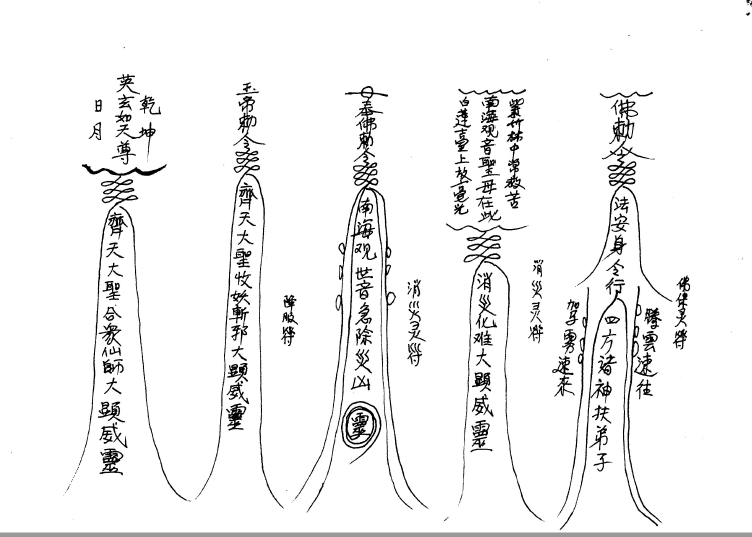 佛勅令
法安身令行
四方诸神扶弟子
腾雲速往
驾雾速来
佛保灵符
紫竹林中常救苦
南海观音聖母在此
白莲臺上放毫光
消災化难大顯威靈
消災灵符
奉佛勅令
南海观世音急除災凶
靈
消災灵符
玉帝勅令
齊天大聖收妖斬邪大顯威靈
降服符
乾坤
英玄如天尊
日月
齊天大聖合衆仙師大顯威靈